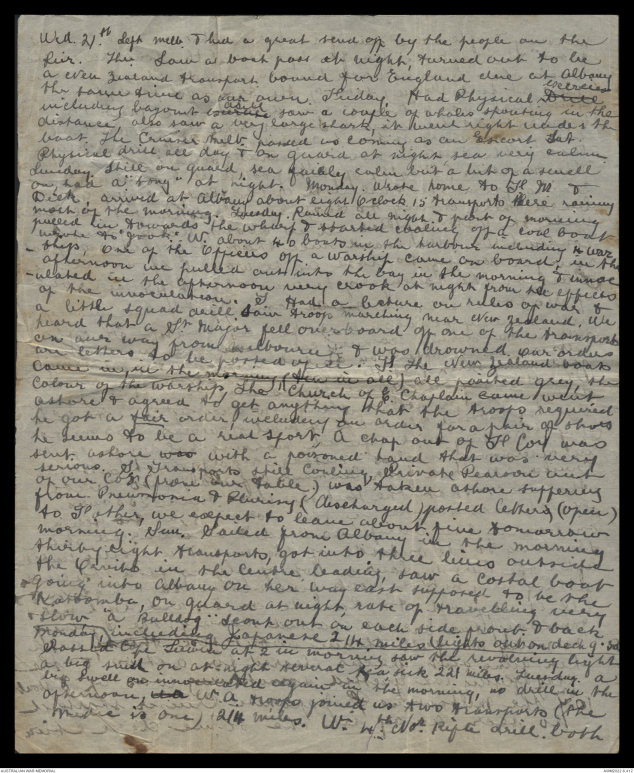 Wed. 21.st Left Melb. & had a great send off by the people on the
Pier. Thu. Saw a boat pass at night, turned out to be
a New Zealand Transport bound for England due at Albany
the same time as our own. Friday, Had Physical Drill
Exercises
including bayonet drill saw a couple of whales spouting in the
distance, also saw a very large shark, it went right under the
boat. The Cruiser Melb. passed us coming as an Escort Sat.
Physical drill all day & on guard at night sea very calm.
Sunday. Still on guard, sea fairly calm but a bit of a swell
on, had a "song" at night. Monday. Wrote home to & M &
Dick, arrived at Albany about eight O'clock 15 transports there raining
most of the morning. Tuesday. Rained all night & part of morning
pulled in towards the wharf & started coaling off a coal boat
wrote to W. about 40 boats in the harbour including 4 war
ships. One of the Officers off a warship came on board, in the
afternoon we pulled out into the bay in the morning & innoc
-ulated in the afternoon very crook at night from the effects
of the innoculation. T. Had a lecture on rules of war &
a little squad drill. Saw troops marching near New Zealand. We
heard that a Sgt Major fell overboard of one of the transports
on our way from Melbourne & was drowned, our orders
are letters to be posted The New Zealand boats
came in, in the morning (ten in all) all painted grey, the
colour of the warship. The Church of E. Chaplain came went
ashore & agreed to get anything that the troops required
he got a fair order, including an order for a pair of shoes
he seems to be a real sport. A chap out of H Coy was
sent ashore with a poisoned hand that was very
serious. S. Transports still Coaling, Private Pearson unit
of our Coy (from our table) was taken ashore suffering
from Pneumonia & Plurisy (discharged) posted letters (open)
to we expect to leave about five tomorrow
morning. Sun. Sailed from Albany in the morning
thirty eight transports, got into three lines outside
the Cruiser in the Centre leading, saw a costal boat
going into Albany on her way east supposed to be the
Karoomba, on guard at night, rate of travelling very
slow "a Bulldog" Scout out on each side front & back
Monday, including Japanese 214 miles lights out on deck 9.30
Passed Cape Leuwin at 2 in morning saw the revolving light
a big swell on at night several sick 221 miles. Tuesday a
big swell on again in the morning, no drill in the
afternoon, W.A. troops joined us two transports (the
Medic is one) 214 miles. W. 4th Nov. Rifle drill. both
AUSTRALIAN WAR MEMORIAL
AWM2022.6.417